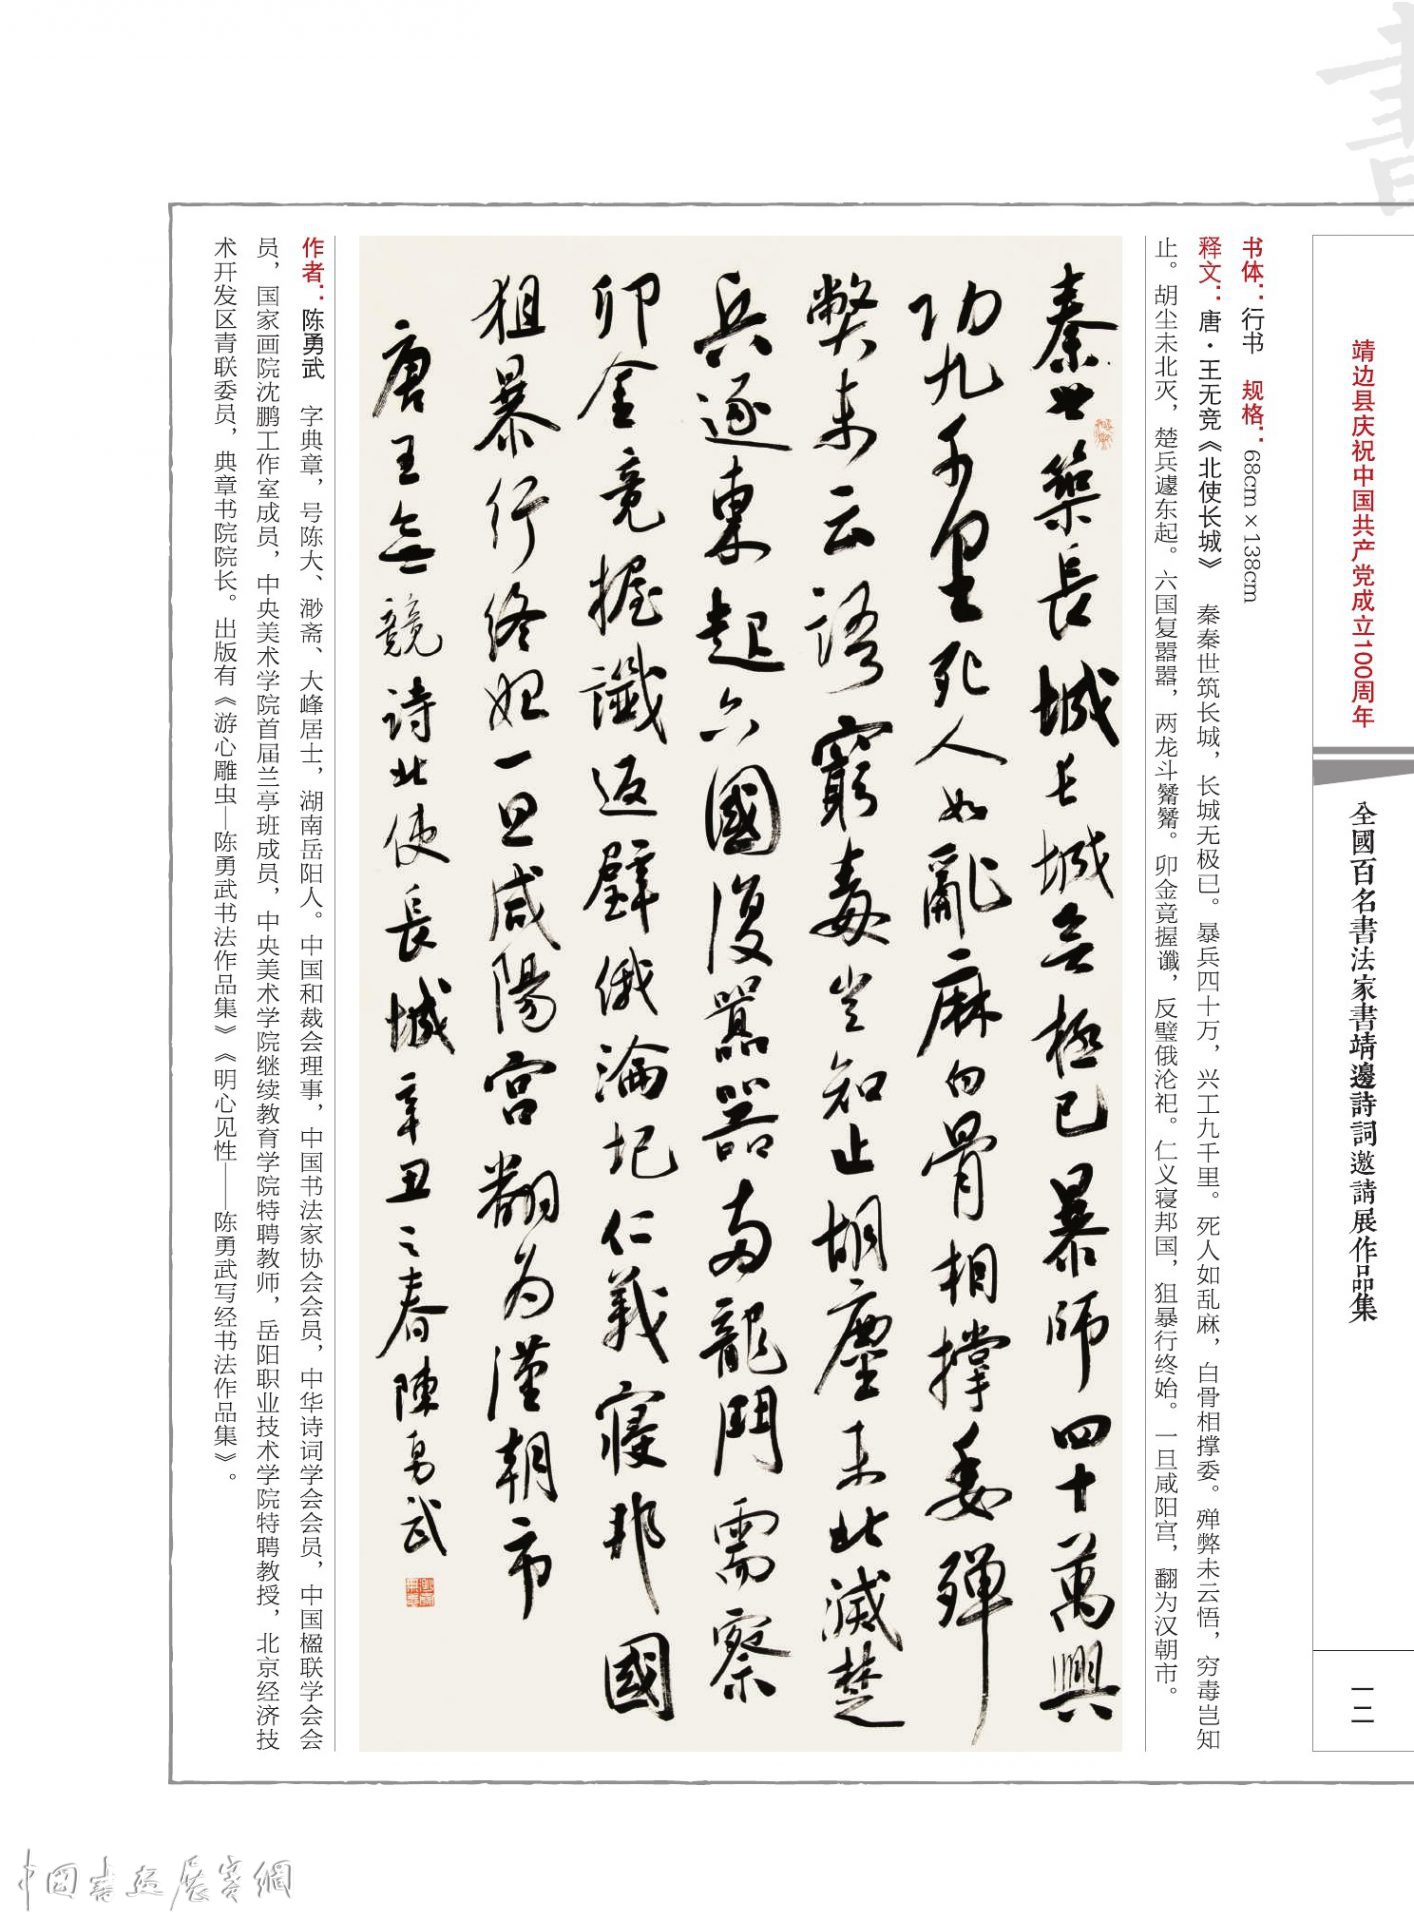 靖边县庆祝中国共产党成立100周年
全國百名書法家書靖邊詩詞邀請展作品集
一二
书体：行书 规格：68cm×138cm
释文：唐·王无竞《北使长城》 秦秦世筑长城，长城无极已。暴兵四十万，兴工九千里。死人如乱麻，白骨相撑委。殚弊未云悟，穷毒岂知
止。胡尘未北灭，楚兵遽东起。六国复嚣嚣，两龙斗觺觺。卯金竟握谶，反璧俄沦祀。仁义寝邦国，狙暴行终始。一旦咸阳宫，翻为汉朝市。
秦世築長城長城無極已暴師四十萬興
功九千里死人如亂麻白骨相撐委殫
弊未云語窮毒豈知止胡塵未北滅楚
兵逐東起六國復囂囂两龍鬥需察
卯金竟握讖返璧俄淪圮仁義寢邦國
狙暴行终始一旦咸陽宫翻为漢朝市
唐王無競詩北使長城辛丑之春陳勇武
作者：陈勇武 字典章，号陈大、渺斋、大峰居士，湖南岳阳人。中国和裁会理事，中国书法家协会会员，中华诗词学会会员，中国楹联学会会
员，国家画院沈鹏工作室成员，中央美术学院首届兰亭班成员，中央美术学院继续教育学院特聘教师，岳阳职业技术学院特聘教授，北京经济技
术开发区青联委员，典章书院院长。出版有《游心雕虫—陈勇武书法作品集》《明心见性——陈勇武写经书法作品集》。
中國書畫展賽網